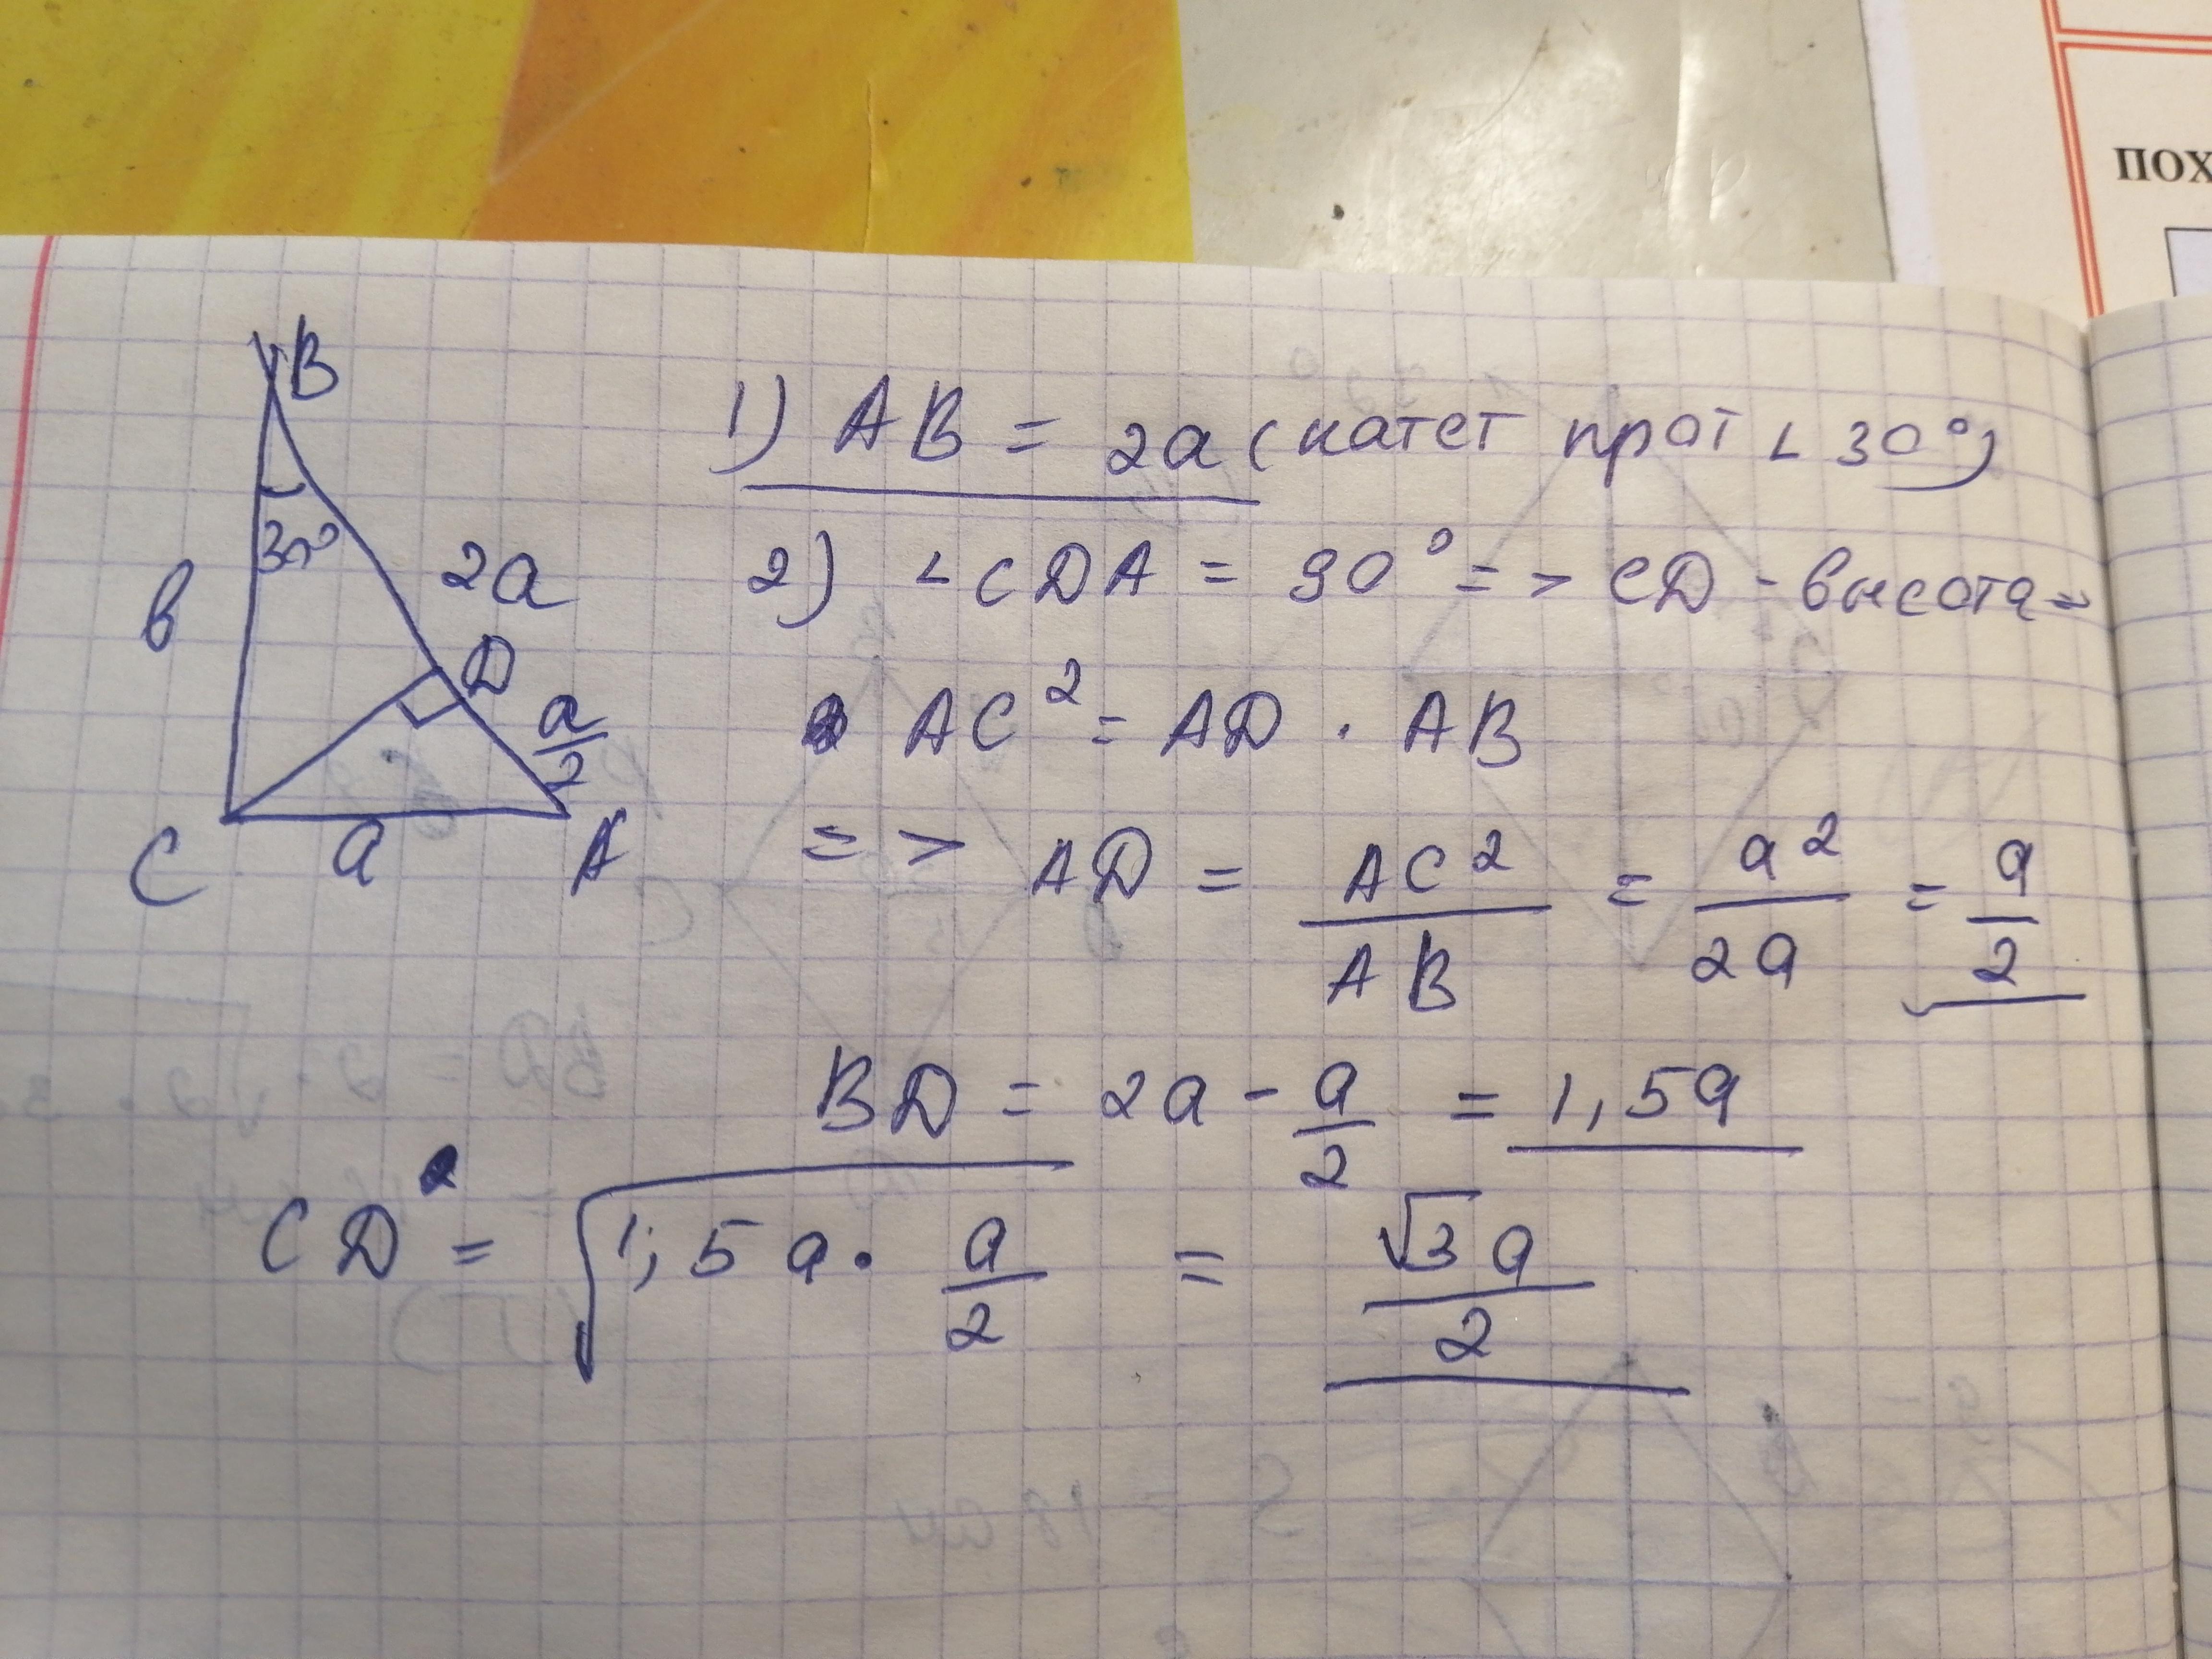 ПОХ
B
30°
2a
в
D
a/2
C
a
A
1) AB = 2a (катет прот ∠ 30°)
2) ∠CDA = 90° => CD - высота =
AC² = AD · AB
=> AD = AC²/AB = a²/2a = a/2
BD = 2a - a/2 = 1,5a
CD = √(1,5a · a/2) = √3a/2